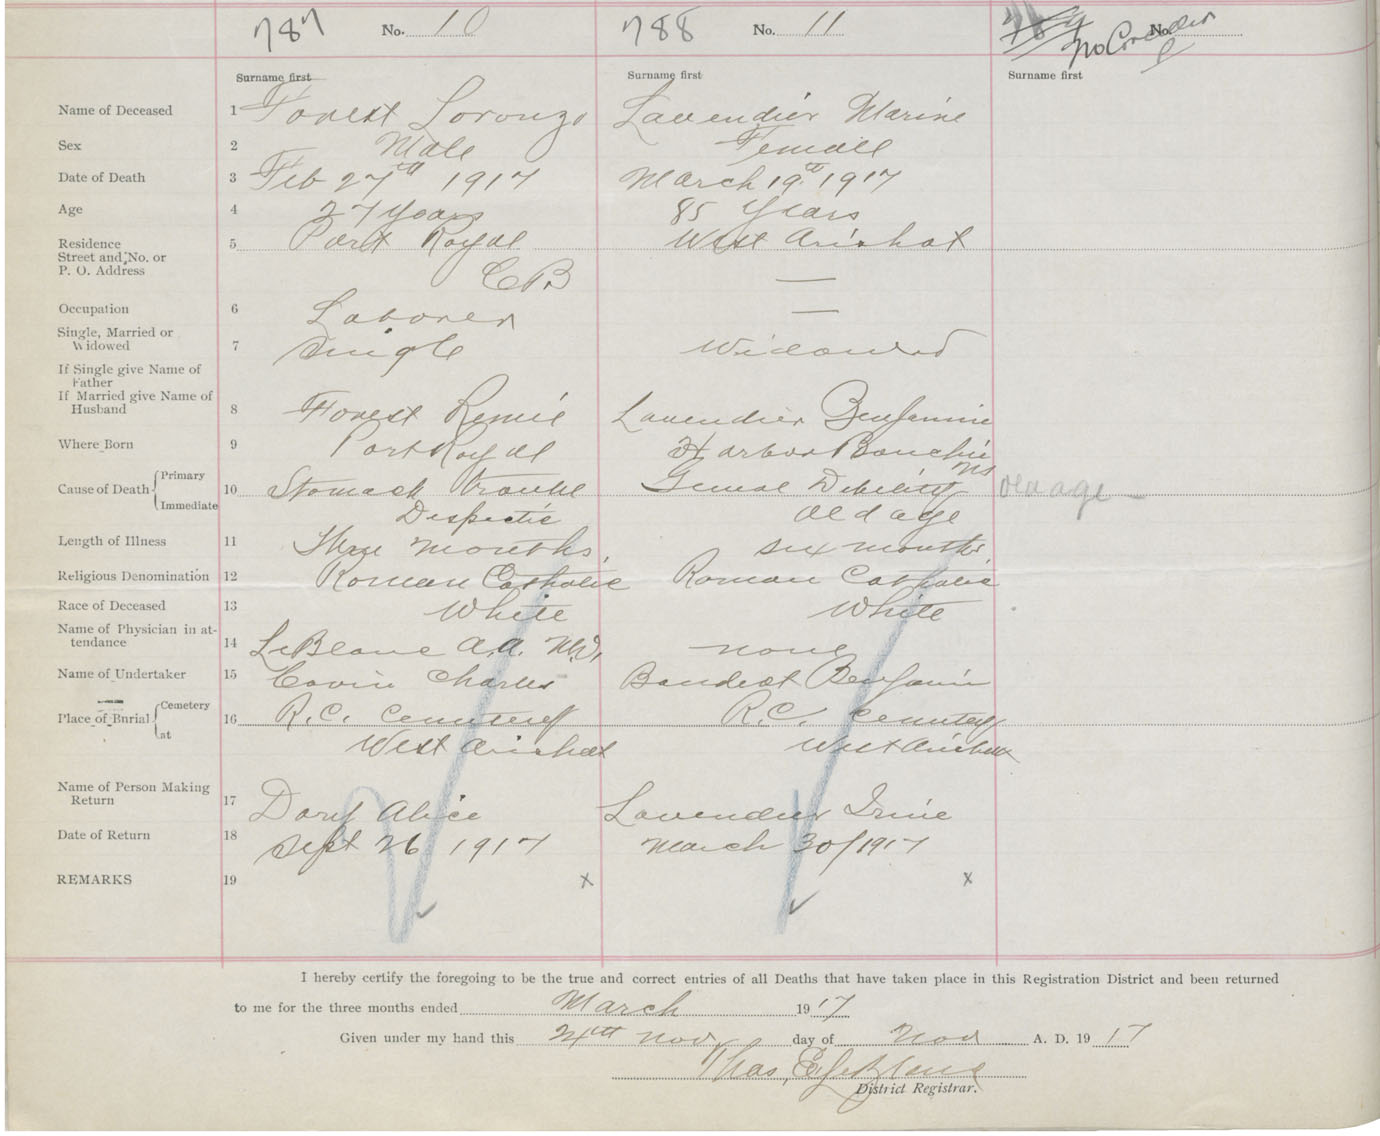 787 No. 10 788 No. 11 No. No
Surname first Surname first Surname first
Name of Deceased 1 Forest Loronzo Lavendier Marine
Sex 2 Male Female
Date of Death 3 Feb 27th 1917 March 19th 1917
Age 4 27 years 85 years
Residence 5 Port Royal West Arichat
Street and No. or
P. O. Address C B —
Occupation 6 Laborer —
Single, Married or
Widowed 7 Single Widowed
If Single give Name of
Father
If Married give Name of
Husband 8 Forest Remie Lavendier Benjamine
Where Born 9 Port Royal Harbor Bouchie
NS
Cause of Death Primary 10 Stomach trouble Debility old age —
Immediate Despectic old age
Length of Illness 11 Three months six months
Religious Denomination 12 Roman Catholic Roman Catholic
Race of Deceased 13 White White
Name of Physician in at-
tendance 14 LeBlanc A.A. M.D. none
Name of Undertaker 15 Charles Benjamin
Place of Burial Cemetery 16 R.C. Cemetery R.C. Cemetery
at West Arichat West Arichat
Name of Person Making
Return 17 Alice Lavendier Irine
Date of Return 18 Sept 26 1917 March 30/1917
REMARKS 19 x x
I hereby certify the foregoing to be the true and correct entries of all Deaths that have taken place in this Registration District and been returned
to me for the three months ended March 1917
Given under my hand this 24th Nov day of Nov A. D. 1917
Thos. E LeBlanc
District Registrar.